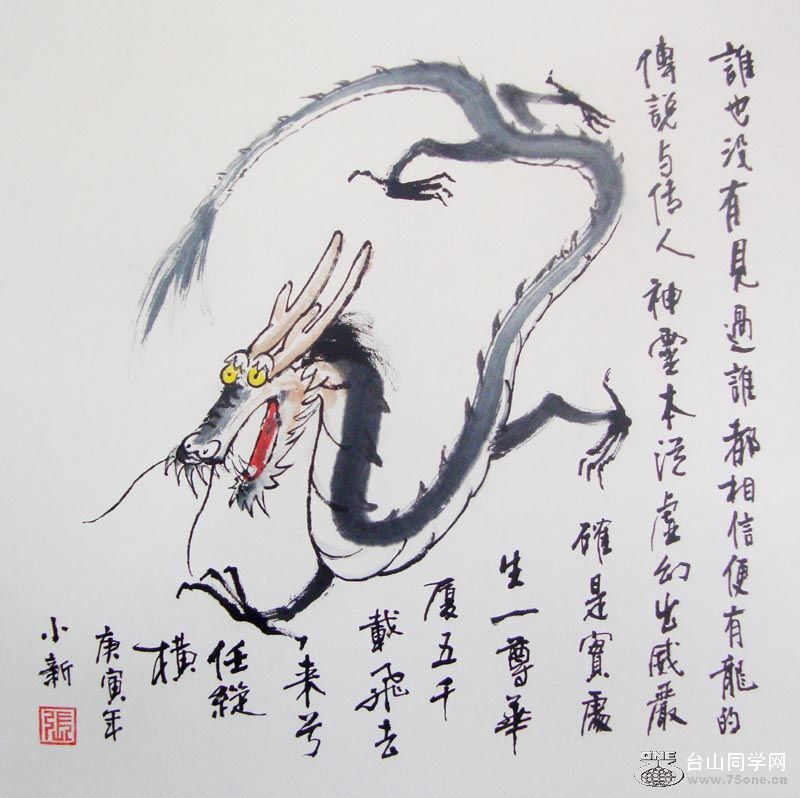 誰也没有見過誰都相信便有龍的
傳説与传人神靈本從虛幻出威嚴
確是實處
生一尊華
厦五千
載飛去
来兮
任縱
橫
庚寅年
小新
張
ONE 台山同学网
www.75one.cn